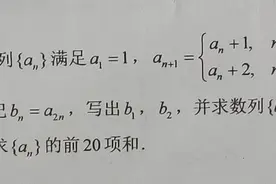 列{aₙ}满足a₁=1，aₙ₊₁={aₙ+1,
aₙ+2,
bₙ=a₂ₙ，写出b₁，b₂，并求数列{
{aₙ}的前20项和.